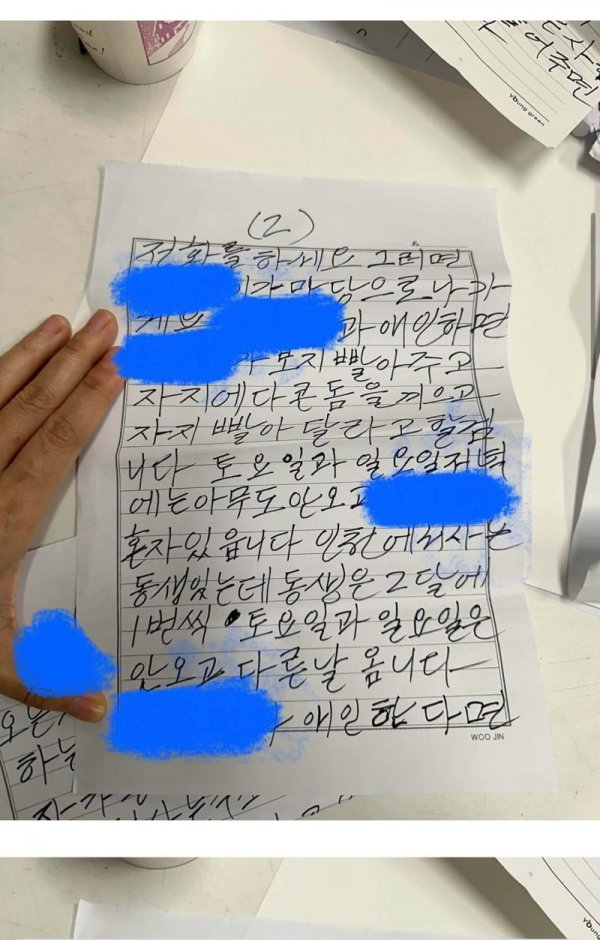 들어주면
young green
(2)
전화를하세요 그러면
가마담으로나가
게요 과애인하면
가 보지빨아주고
자지에다콘돔을끼우고
자지 빨아 달라고할겁
니다 토요일과 일요일저녁
에는아무도안오고
혼자있읍니다 인천에서사는
동생있는데 동생은 2달에
1번씩 토요일과 일요일은
안오고 다른날 옵니다
애인한다면
WOO JIN
하는